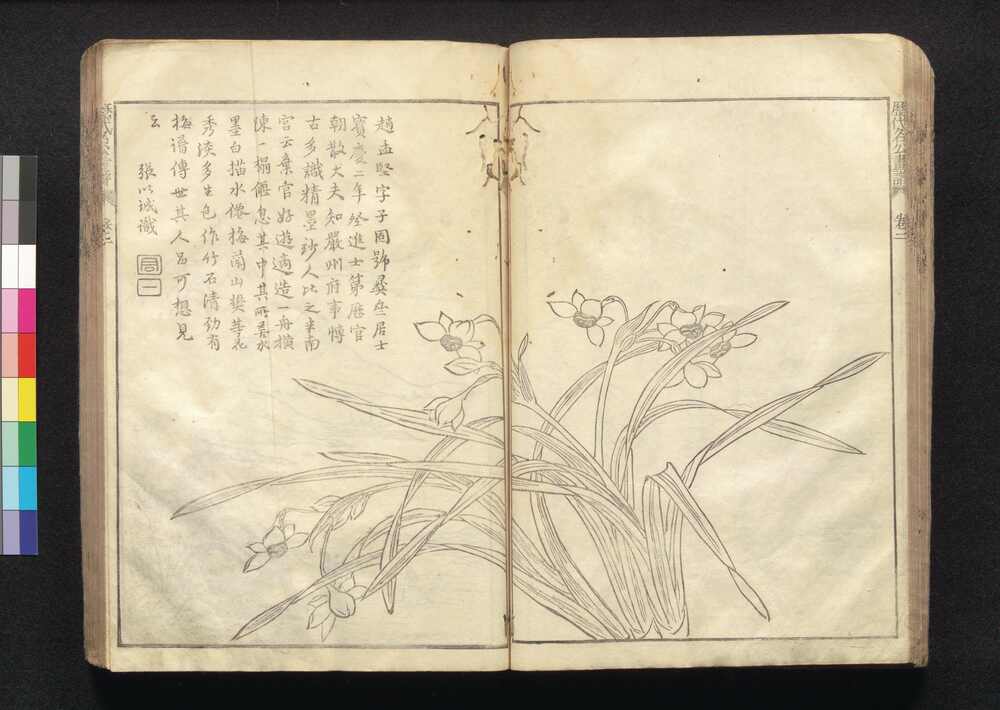 趙孟堅字子固號彜齋居士
寶慶二年登進士第歷官
朝散大夫知嚴州府事博
古多識精墨妙人比之米南
宮云棄官好遊適造一舟橫
陳一榻偃息其中其所著水
墨白描水僊梅蘭山礬等花
秀淡多生色作竹石清勁有
梅譜傳世其人品可想見
云
張以誠識
卷二
歷代名公畫譜
卷二